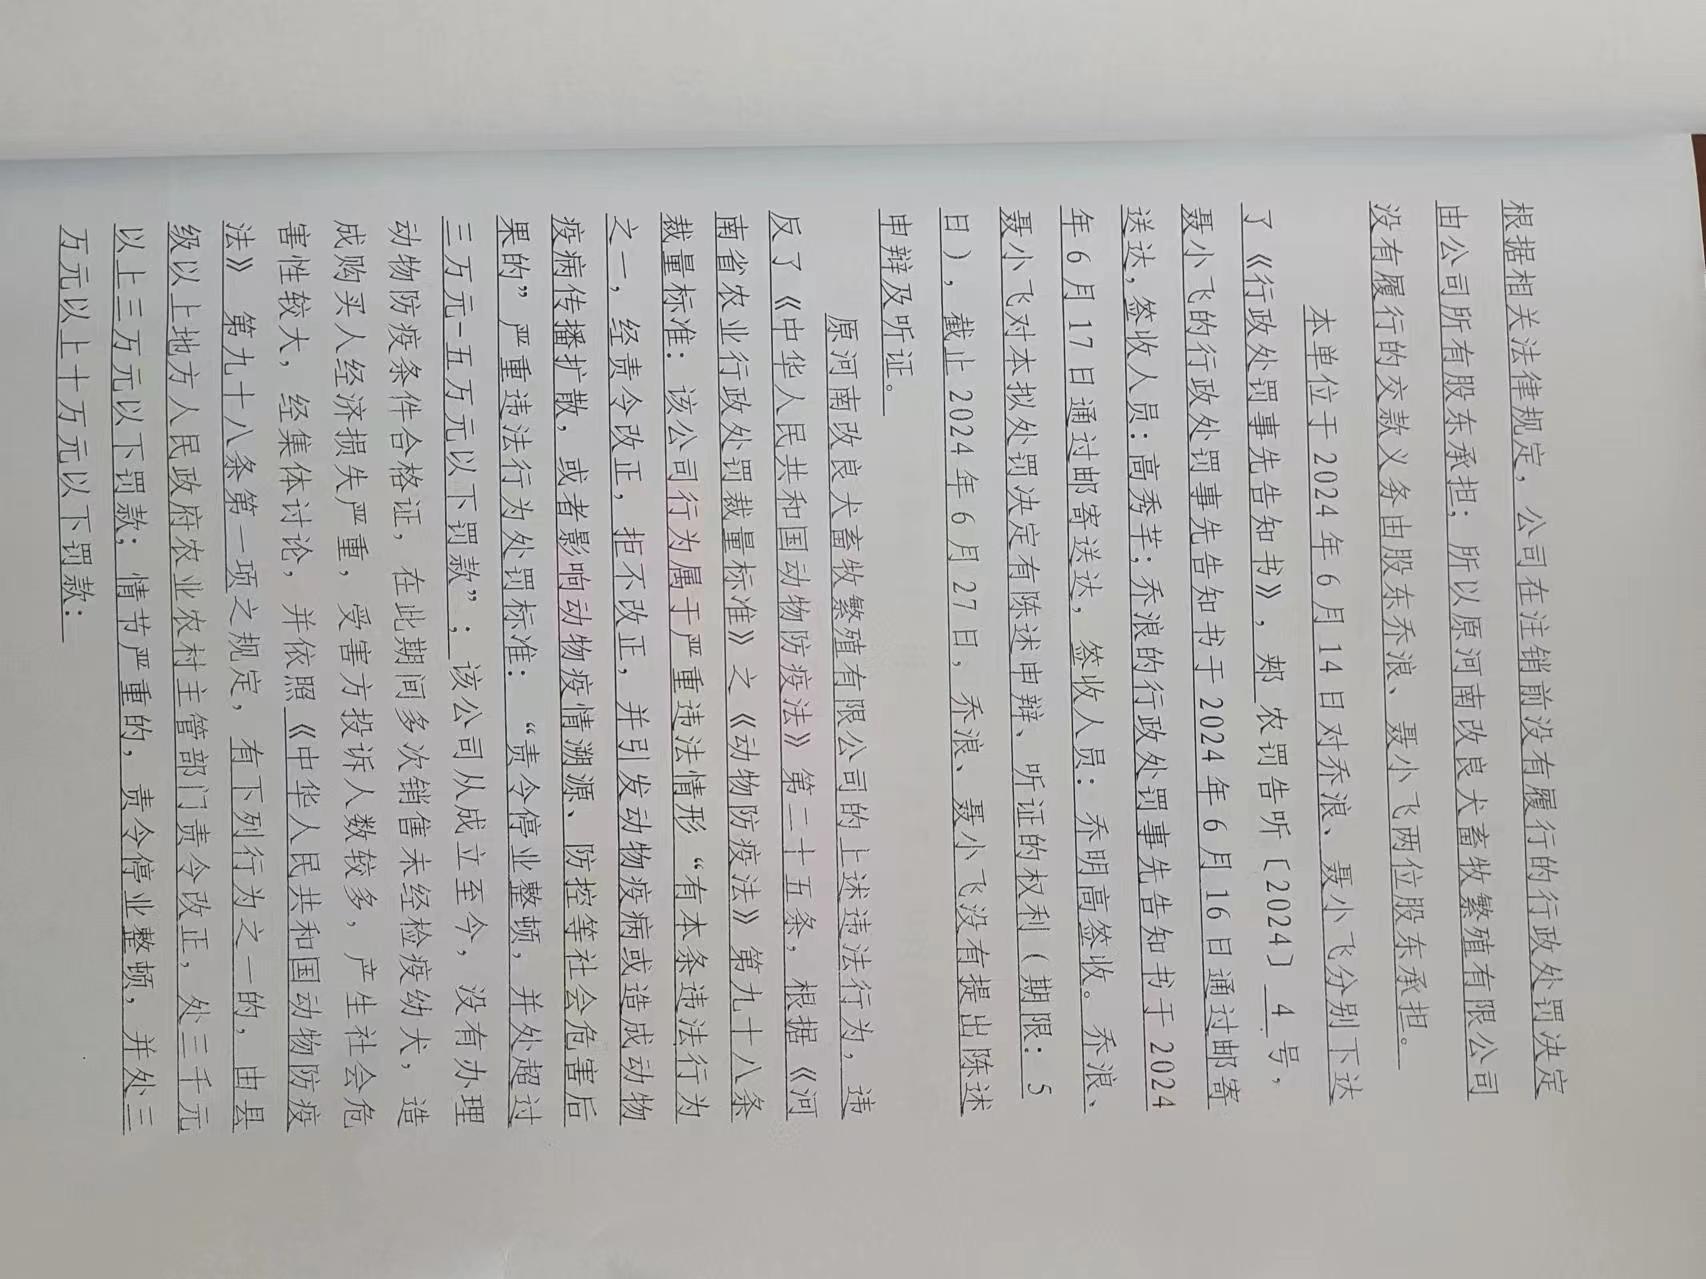 根据相关法律规定，公司在注销前没有履行的行政处罚决定
由公司所有股东承担；所以原河南改良犬畜牧繁殖有限公司
没有履行的交款义务由股东乔浪、聂小飞两位股东承担。
本单位于2024年6月14日对乔浪、聂小飞分别下达
了《行政处罚事先告知书》，郏 农罚告听〔2024〕 4 号，
聂小飞的行政处罚事先告知书于2024年6月16日通过邮寄
送达，签收人员：高秀芊；乔浪的行政处罚事先告知书于2024
年6月17日通过邮寄送达，签收人员：乔明高签收。乔浪、
聂小飞对本拟处罚决定有陈述申辩、听证的权利（期限：5
日），截止2024年6月27日，乔浪、聂小飞没有提出陈述
申辩及听证。
原河南改良犬畜牧繁殖有限公司的上述违法行为，违
反了《中华人民共和国动物防疫法》第二十五条，根据《河
南省农业行政处罚裁量标准》之《动物防疫法》第九十八条
裁量标准：该公司行为属于严重违法情形“有本条违法行为
之一，经责令改正，拒不改正，并引发动物疫病或造成动物
疫病传播扩散，或者影响动物疫情溯源、防控等社会危害后
果的”严重违法行为处罚标准：“责令停业整顿，并处超过
三万元-五万元以下罚款”；该公司从成立至今，没有办理
动物防疫条件合格证，在此期间多次销售未经检疫幼犬，造
成购买人经济损失严重，受害方投诉人数较多，产生社会危
害性较大，经集体讨论，并依照《中华人民共和国动物防疫
法》第九十八条第一项之规定，有下列行为之一的，由县
级以上地方人民政府农业农村主管部门责令改正，处三千元
以上三万元以下罚款；情节严重的，责令停业整顿，并处三
万元以上十万元以下罚款：